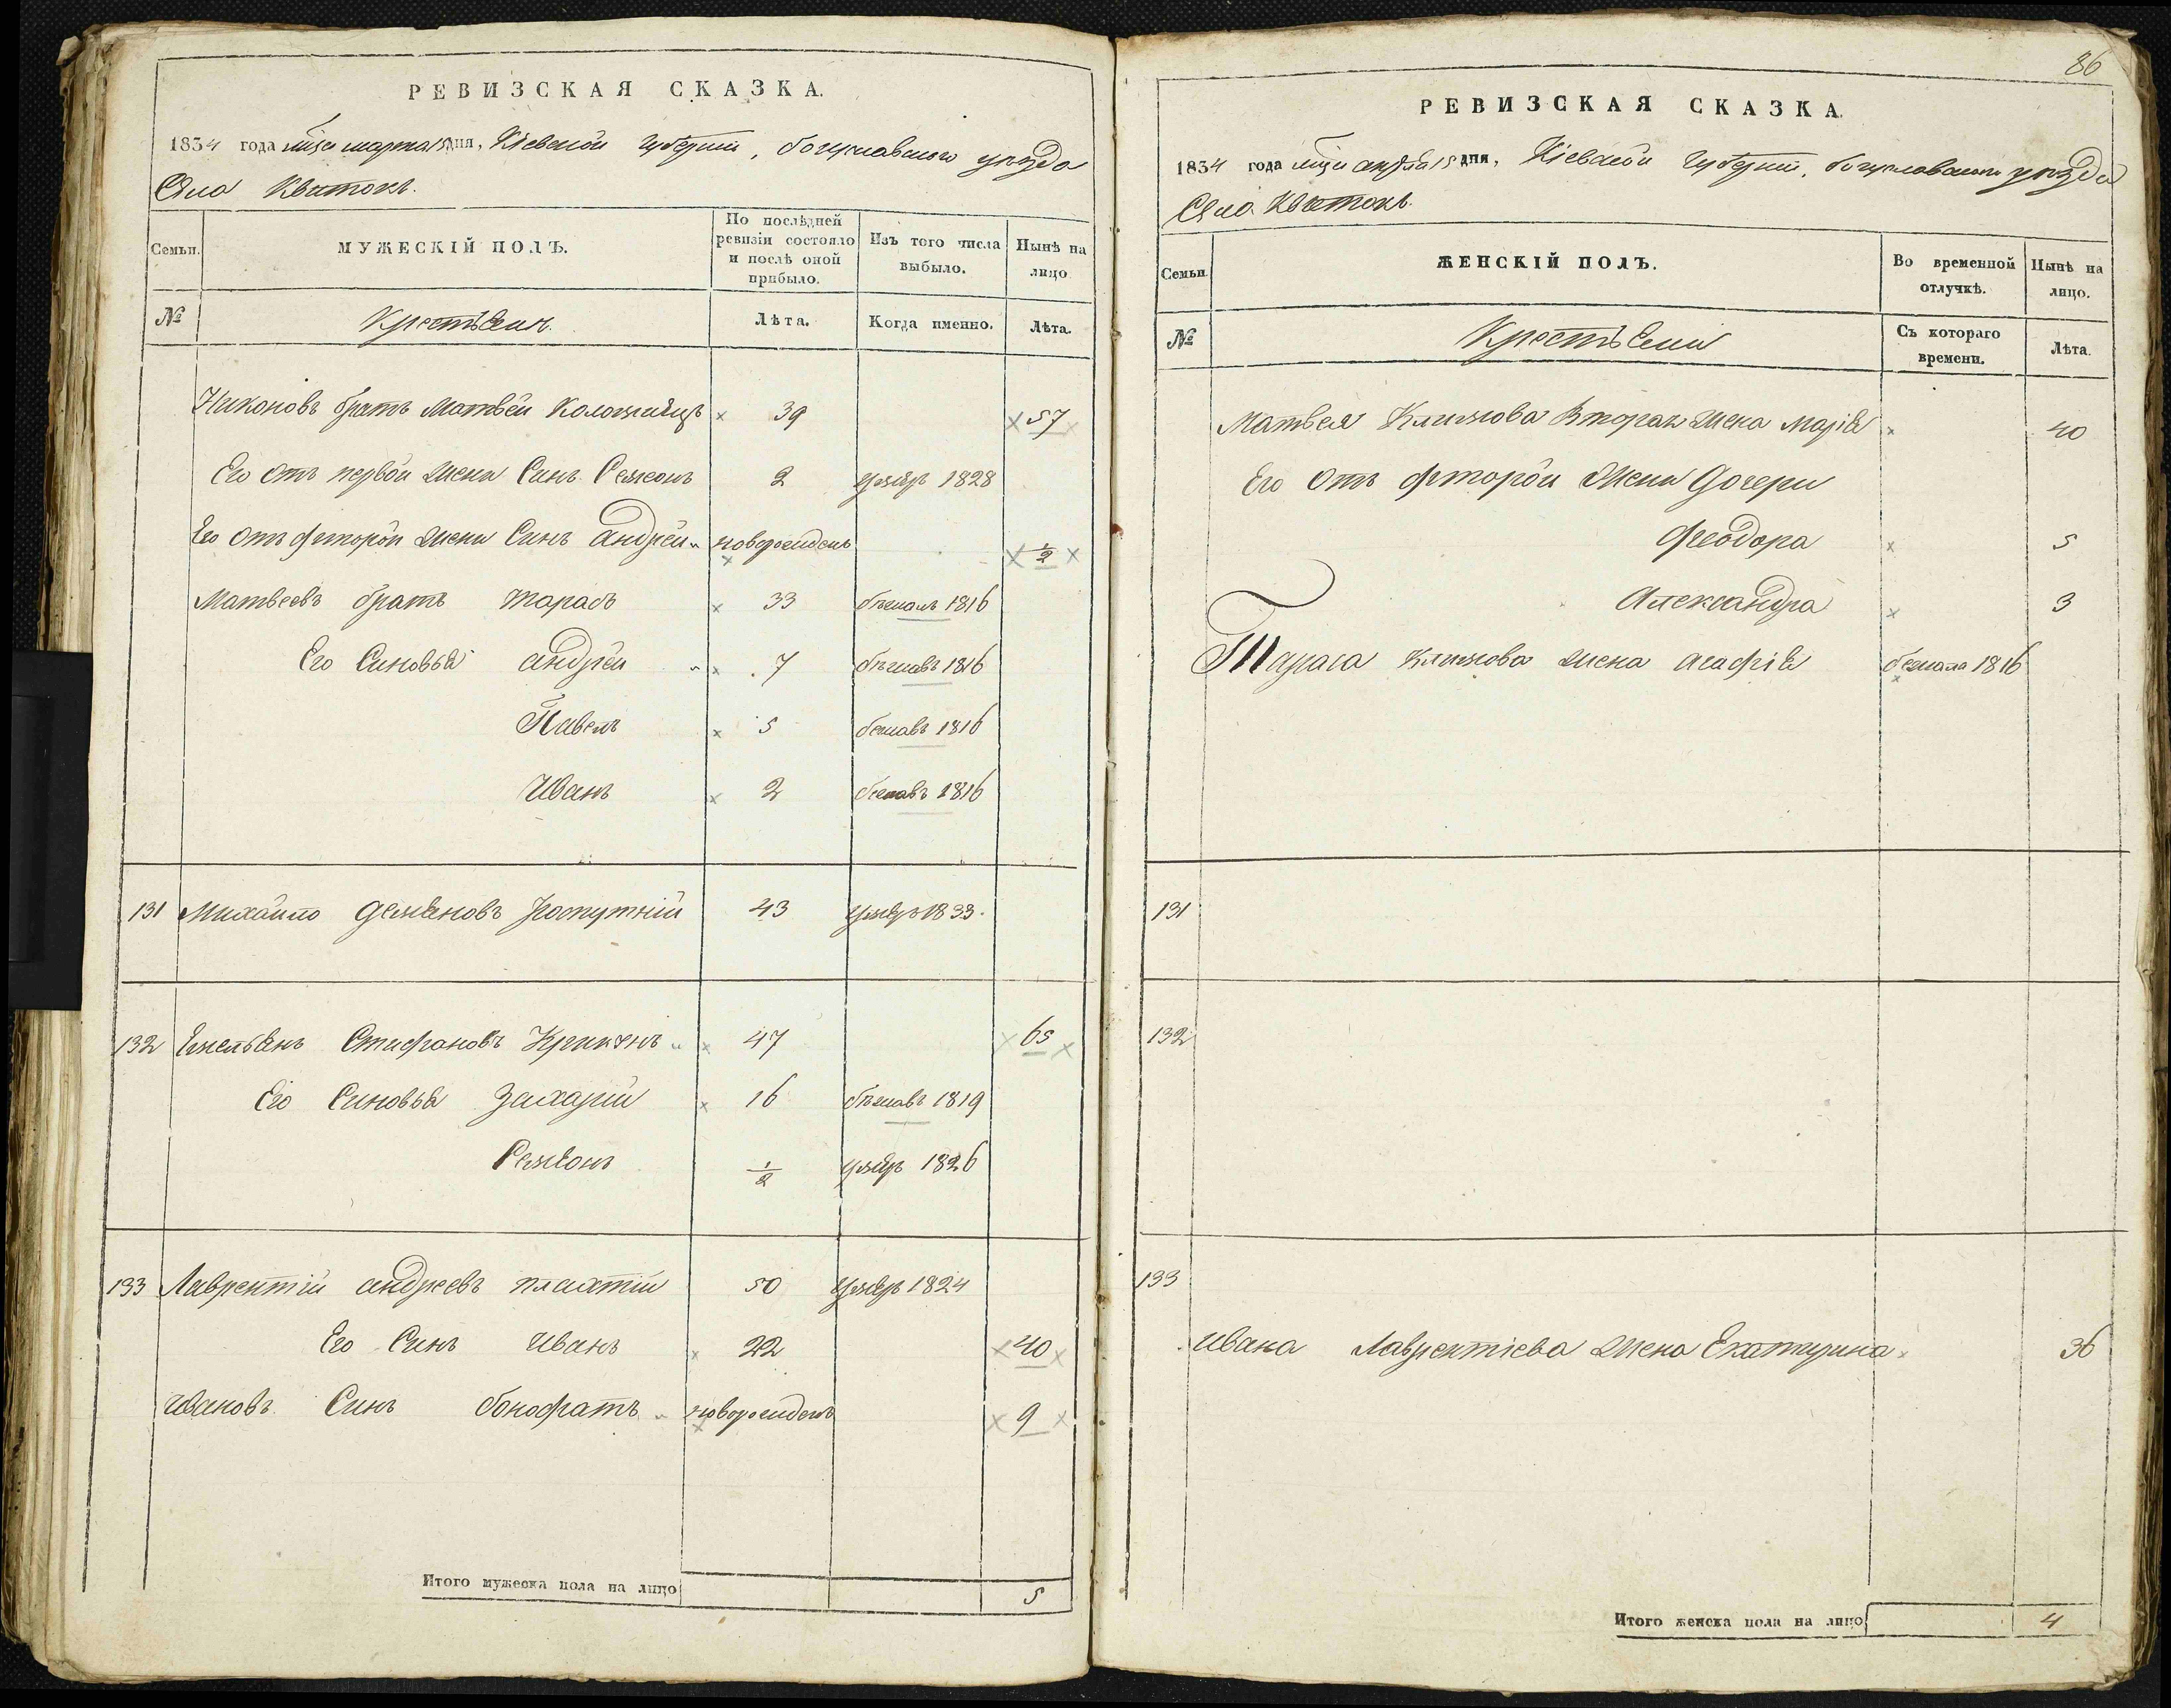 РЕВИЗСКАЯ СКАЗКА.
1834 года мѣся марта 15 дня, Кіевской Губерніи, богуславского уѣзда
Села Квитокъ.
Семьи.
МУЖЕСКІЙ ПОЛЪ.
По послѣдней ревизіи состояло и послѣ оной прибыло.
Изъ того числа выбыло.
Нынѣ на лицо
№
Крестьяне.
Лѣта.
Когда именно.
Лѣта.
Никоновъ братъ Матвей 39 57
Его отъ первой жени Синъ Семеонъ 2 умѣръ 1828
Его отъ фторой жени Синъ андрей новорожденъ 1/2
Матвеевъ братъ тарасъ 33 1816
Его Синовья андрей 7 бѣжавъ 1816
Павелъ 5 бежавъ 1816
Иванъ 2 бежавъ 1816
131 Михайло демяновъ 43 умѣръ 1833.
132 Емельянъ Стефановъ 47 65
Его Синовья Захарій 16 бѣжавъ 1819
Семеонъ 1/2 умѣръ 1826
133 Лаврентій андреевъ плахтій 50 умѣръ 1824
Его Синъ Иванъ 22 40
Ивановъ Синъ бонофатъ новорожденъ 9
Итого мужеска пола на лицо 5
86
РЕВИЗСКАЯ СКАЗКА.
1834 года мѣся 15 дня, Кіевской Губерніи, богуславского уѣзда
Села Квитокъ.
Семьи.
ЖЕНСКІЙ ПОЛЪ.
Во временной отлучкѣ.
Нынѣ на лицо.
№
Крестьяни
Съ котораго времени.
Лѣта.
Матвея Климова Вторая жена Марія 40
Его Отъ фторой жени Дочери
феодора 5
Александра 3
Тараса Климова жена агафія бежала 1816
131
132
133
Ивана Лаврентіева жена Екатерина 36
Итого женска пола на лицо 4